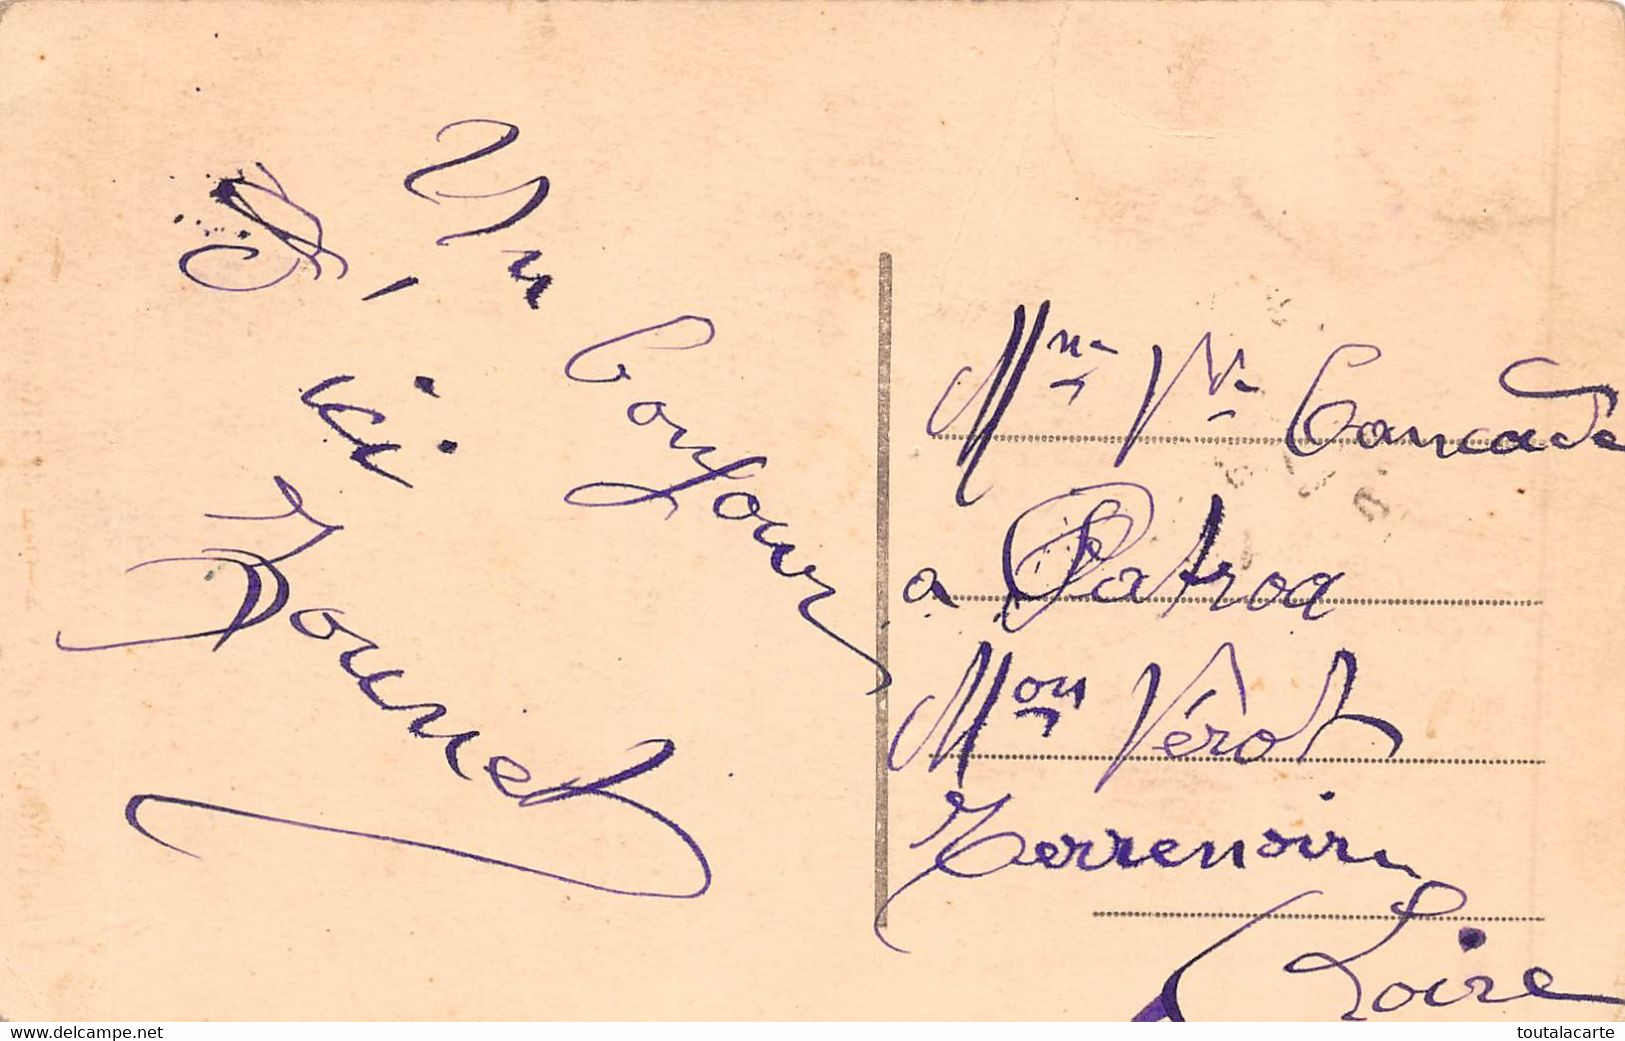 Un bonjour
D'ici
Mme Vve
a Patroa
Mon Vérot
Terrenoire
Loire
www.delcampe.net
toutalacarte